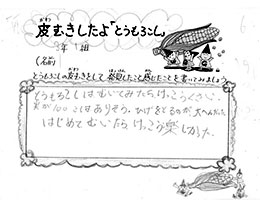 皮むきしたよ「とうもろこし」
年 組
(名前)
とうもろこしの皮むきをして発見したこと感じたことを書いてみましょう
とうもろこしはむいてみたらけっこうくさい。
実が100こはありそう。ひげをとるのが大へんだった
はじめてむいたらけっこう楽しかった。